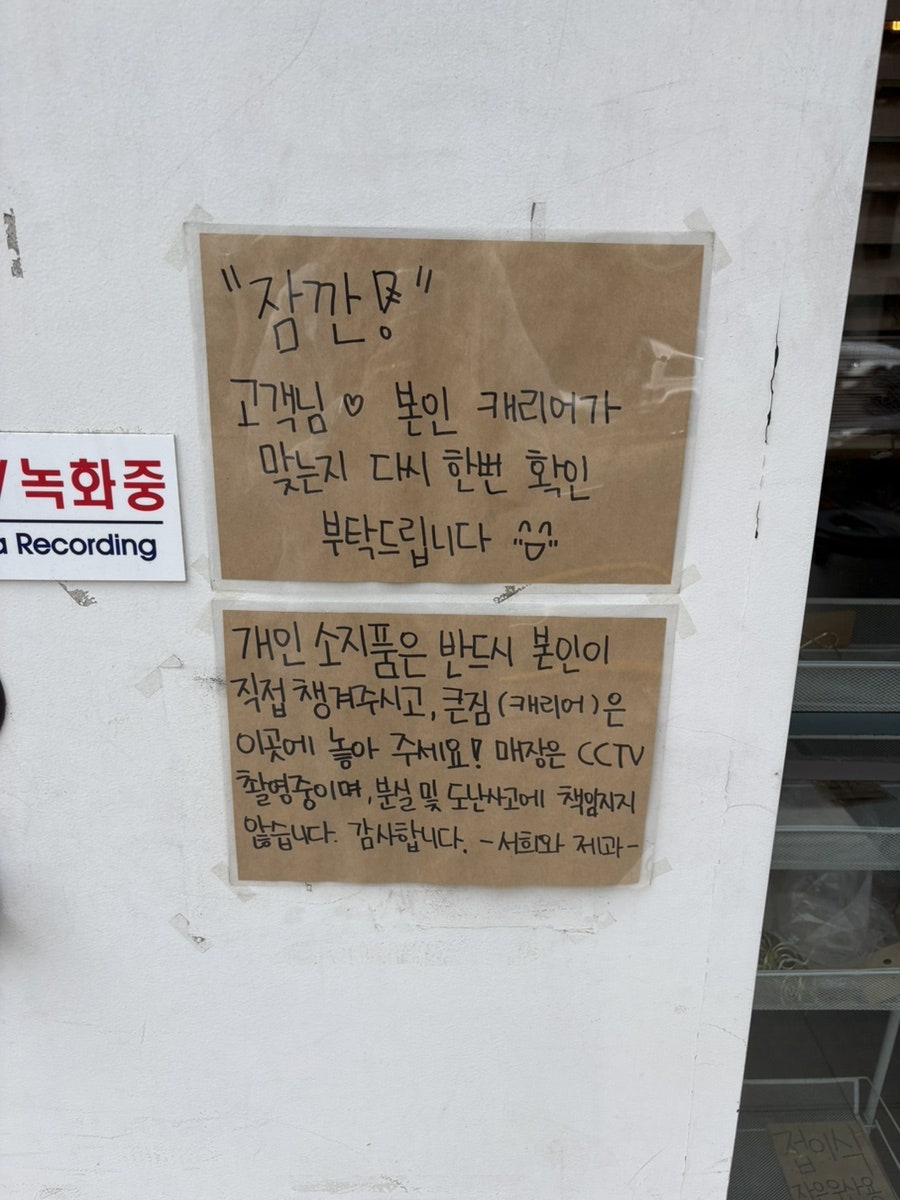 "잠깐용"
고객님 ♡ 본인 캐리어가
맞는지 다시 한번 확인
부탁드립니다
녹화중
Recording
개인 소지품은 반드시 본인이
직접 챙겨주시고, 큰짐 (캐리어)은
이곳에 놓아 주세요! 매장은 CCTV
촬영중이며, 분실 및 도난사고에 책임지지
않습니다. 감사합니다. -서희와 제과-
접이식